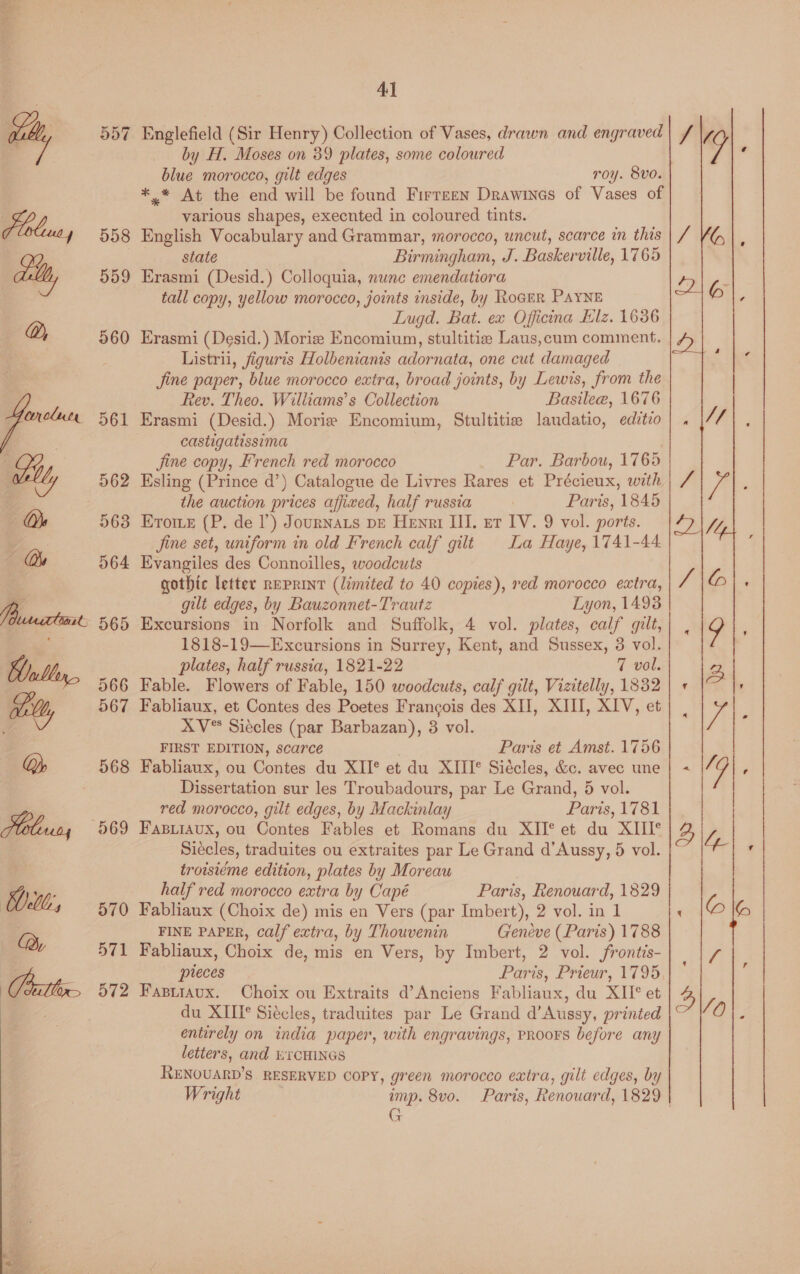 41
Lilly 557 Englefield (Sir Henry) Collection of Vases, drawn and engraved / 19 .
by H. Moses on 39 plates, some coloured
blue morocco, gilt edges roy. 8vo.
*** At the end will be found FIFTEEN DRAWINGS of Vases of
various shapes, execnted in coloured tints.
558 English Vocabulary and Grammar, morocco, uncut, scarce in this / 16 .
state Birmingham, J. Baskerville, 1765
Lilly 559 Erasmi (Desid.) Colloquia, nunc emendatiora
tall copy, yellow morocco, joints inside, by ROGER PAYNE 2 6 .
Lugd. Bat. ex Officina Elz. 1636
Do 560 Erasmi (Desid.) Moriæ Encomium, stultitiæ Laus, cum comment.
Listrii, figuris Holbenianis adornata, one cut damaged
fine paper, blue morocco extra, broad joints, by Lewis, from the
Rev. Theo. Williams's Collection Basileæ, 1676
561 Erasmi (Desid.) Moriæ Encomium, Stultitiæ laudatio, editio . 11 .
castigatissima
fine copy, French red morocco Par. Barbou, 1765
Lilly 562 Esling (Prince d') Catalogue de Livres Rares et Précieux, with / 7 .
the auction prices affixed, half russia Paris, 1845
Do 563 ETOILE (P. de l') JOURNALS DE HENRI III. ET IV. 9 vol. ports. 2 14 .
fine set, uniform in old French calf gilt La Haye, 1741-44
Do 564 Evangiles des Connoilles, woodcuts
gothic letter REPRINT (limited to 40 copies), red morocco extra, / 6 .
gilt edges, by Bauzonnet-Trautz Lyon, 1493
565 Excursions in Norfolk and Suffolk, 4 vol. plates, calf gilt, . 9 .
1818-19—Excursions in Surrey, Kent, and Sussex, 3 vol.
plates, half russia, 1821-22 7 vol.
Waller 566 Fable. Flowers of Fable, 150 woodcuts, calf gilt, Vizitelly, 1832 . 2 .
Lilly 567 Fabliaux, et Contes des Poetes François des XII, XIII, XIV, et . 7 .
XVes Siècles (par Barbazan), 3 vol.
FIRST EDITION, scarce Paris et Amst. 1756
Do 568 Fabliaux, ou Contes du XIIe et du XIIIe Siécles, &c. avec une . 19 .
Dissertation sur les Troubadours, par Le Grand, 5 vol.
red morocco, gilt edges, by Mackinlay Paris, 1781
569 FABLIAUX, ou Contes Fables et Romans du XIIe et du XIIIe
Siècles, traduites ou extraites par Le Grand d'Aussy, 5 vol.
troisiéme edition, plates by Moreau
half red morocco extra by Capé Paris, Renouard, 1829
570 Fabliaux (Choix de) mis en Vers (par Imbert), 2 vol. in 1 . 6 6
FINE PAPER, calf extra, by Thouvenin Genève (Paris) 1788
Do 571 Fabliaux, Choix de, mis en Vers, by Imbert, 2 vol. frontis-
pieces Paris, Prieur, 1795
572 FABLIAUX. Choix ou Extraits d'Anciens Fabliaux, du XIIe et
du XIIIe Siècles, traduites par Le Grand d'Aussy, printed
entirely on india paper, with engravings, PROOFS before any
letters, and ETCHINGS
RENOUARD'S RESERVED COPY, green morocco extra, gilt edges, by
Wright imp. 8vo. Paris, Renouard, 1829
G